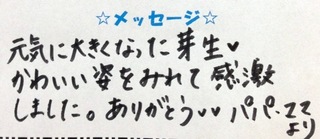 ☆メッセージ☆
元気に大きくなった芽生♥
かわいい姿をみれて感激
しました。ありがとう♥♥ パパ・ママ
より